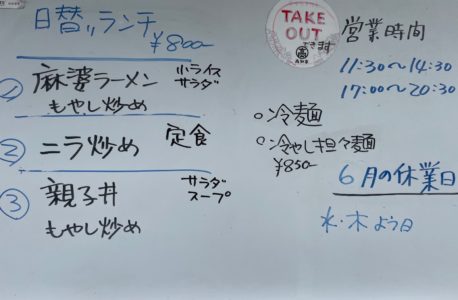 日替りランチ
¥800-
① 麻婆ラーメン 小ライス サラダ
もやし炒め
② ニラ炒め 定食
③ 親子丼 サラダ スープ
もやし炒め
TAKE
OUT
できます
○冷麺
○冷やし担々麺
¥850-
営業時間
11:30〜14:30
17:00〜20:30
6月の休業日
水・木よう日